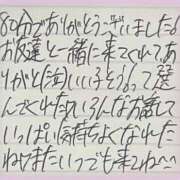 80分でありがとうございました
お友達と一緒に来てくれてあ
りがと(笑)いい子そうって選
んでくれたね いろんなお話して
いっぱい気持ちよくなれた
ねまたいつでも来てね